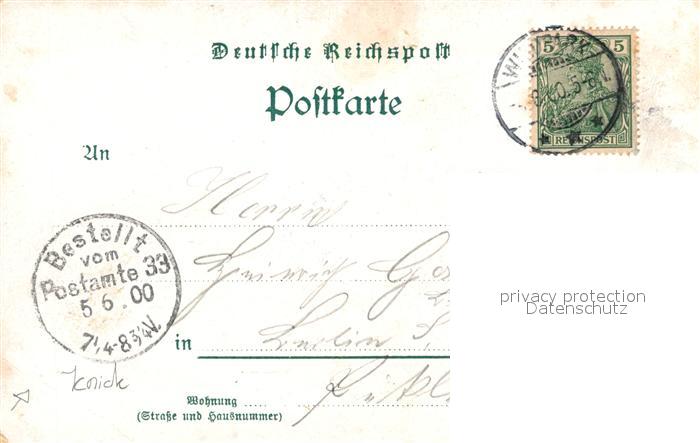 Deutsche Reichspost
Postkarte
5 5
REICHSPOST
WILDPARK
An
Herrn
Heinrich
Bestellt
vom
Postamte 33
5 6.00
7¼-8¾N.
in Berlin S.
Knick
Wohnung
(Straße und Hausnummer)
privacy protection
Datenschutz